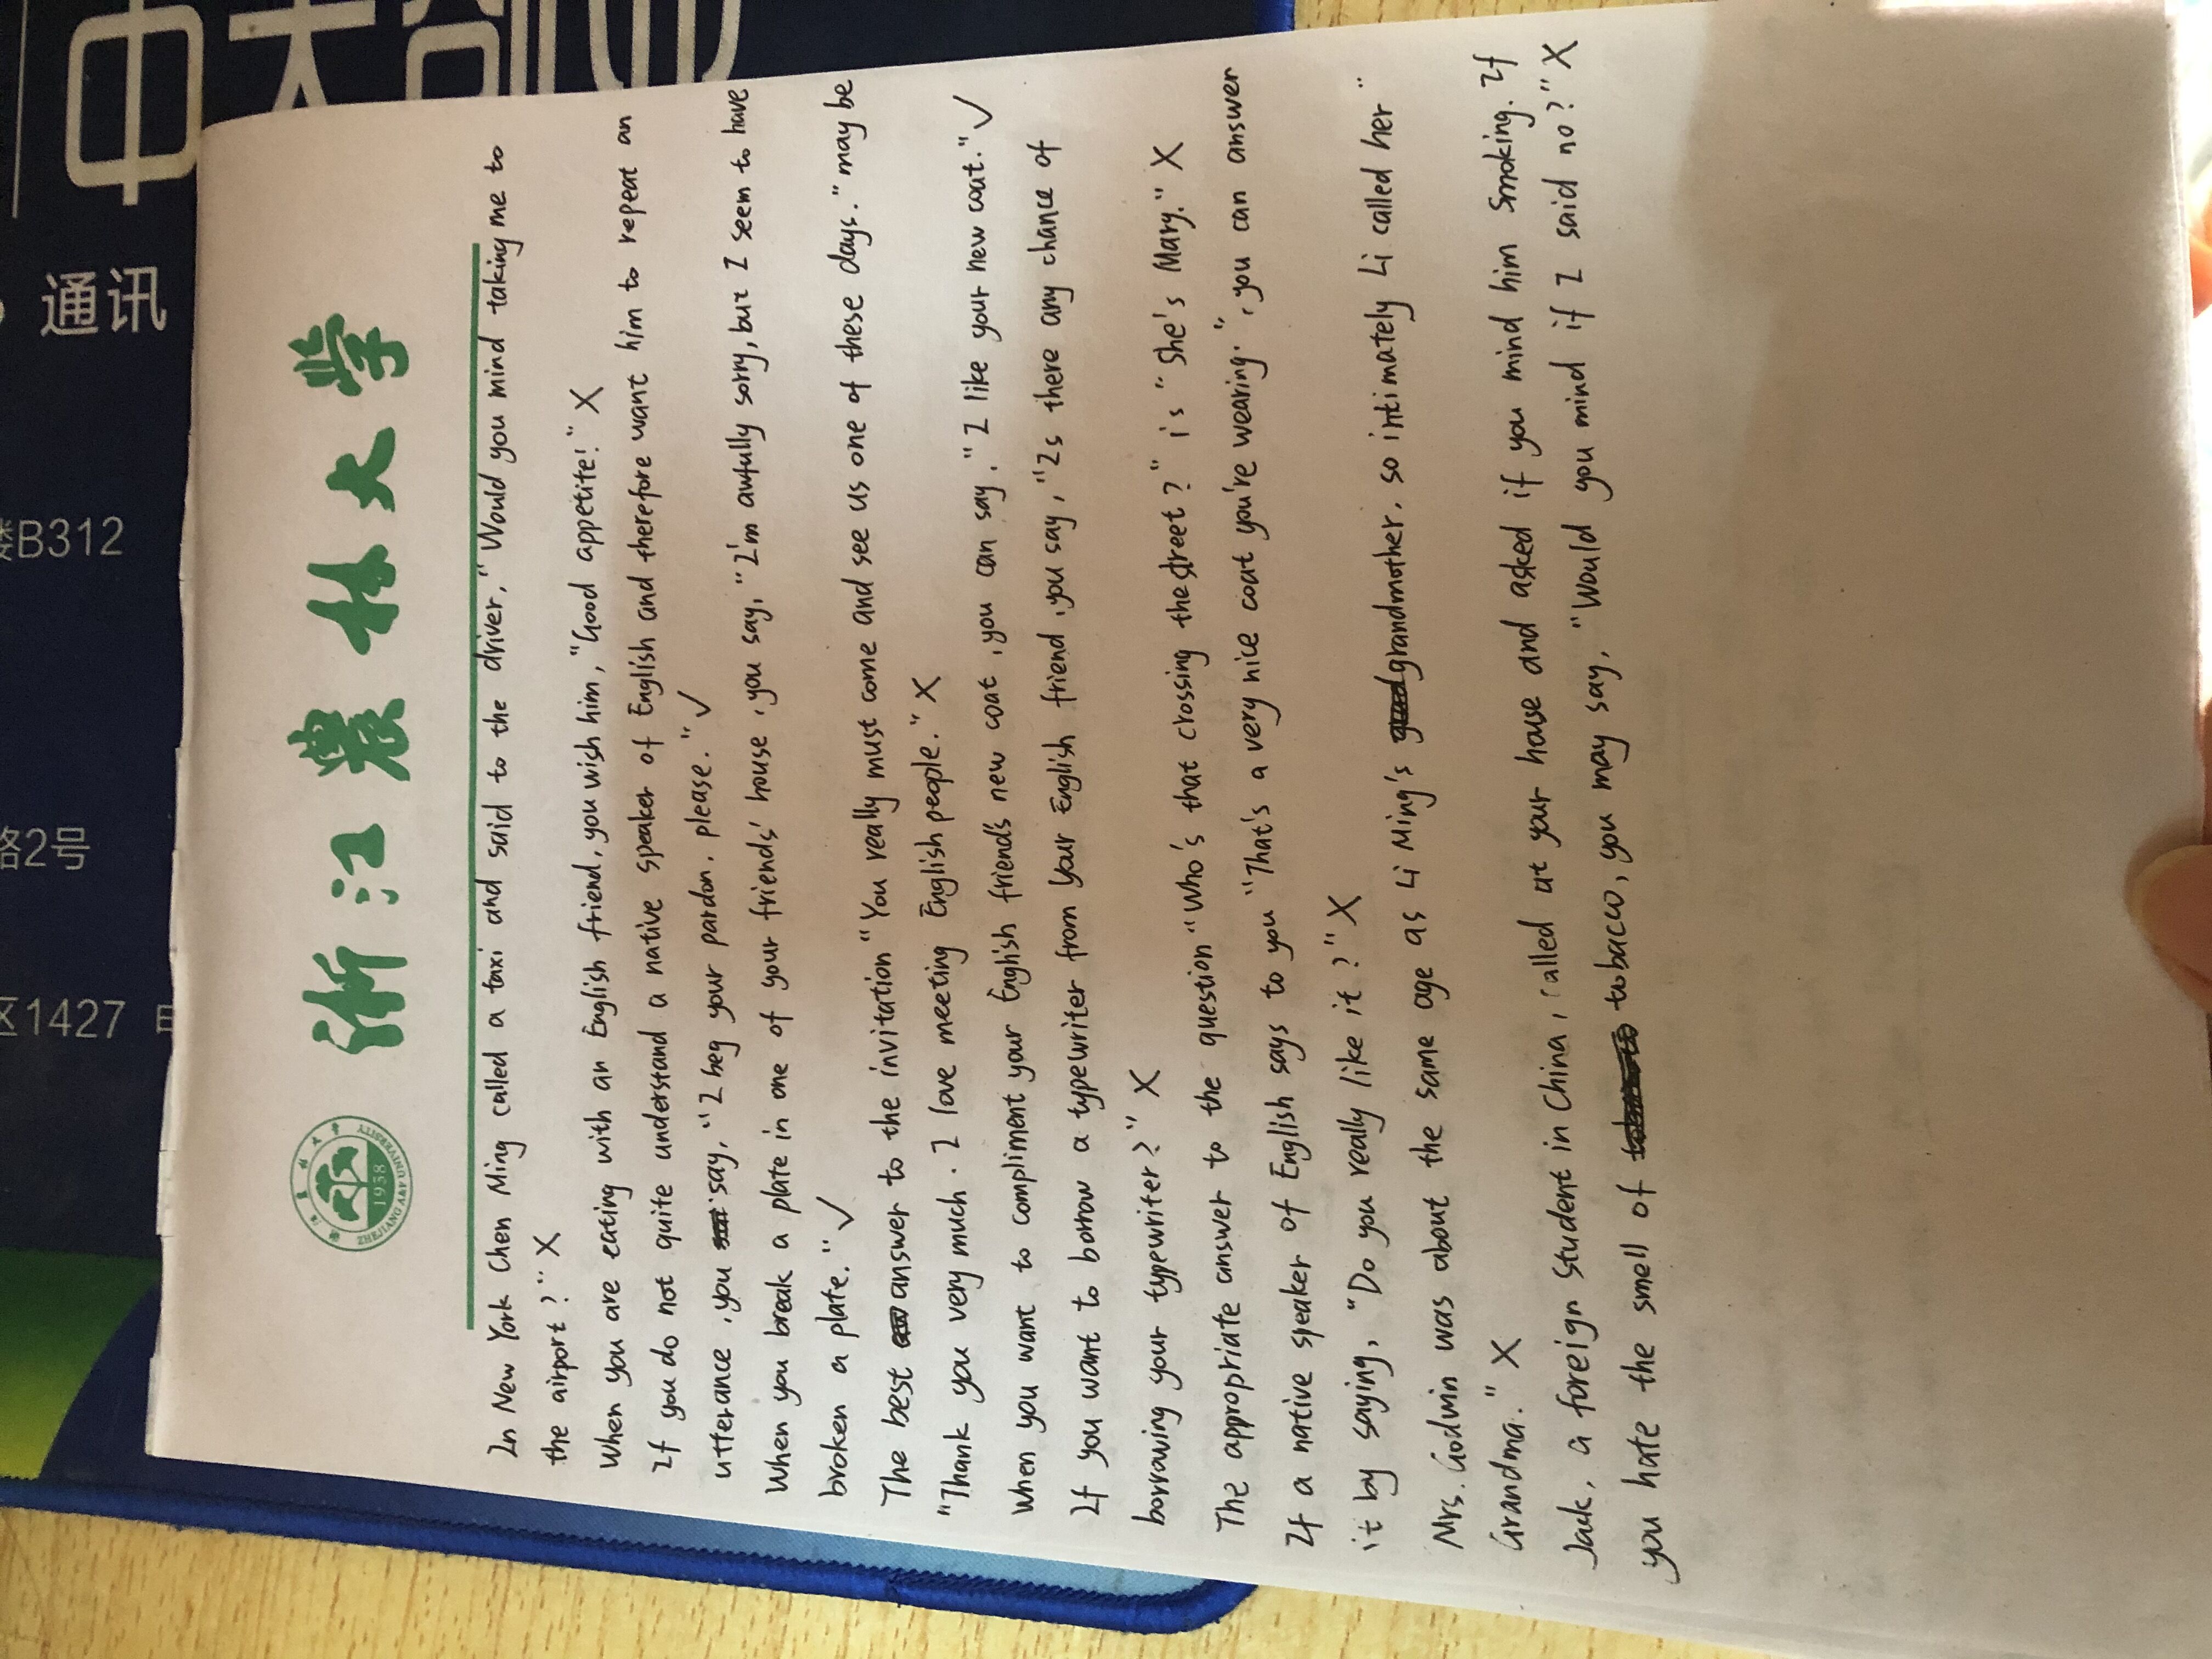 浙江農林大学
1958
ZHEJIANG A&F UNIVERSITY
In New York Chen Ming called a taxi and said to the driver, "Would you mind taking me to
the airport?" X
When you are eating with an English friend, you wish him, "Good appetite!" X
If you do not quite understand a native speaker of English and therefore want him to repeat an
utterance, you say, "I beg your pardon, please." ✓
When you break a plate in one of your friends' house, you say, "I'm awfully sorry, but I seem to have
broken a plate." ✓
The best answer to the invitation "You really must come and see us one of these days." may be
"Thank you very much. I love meeting English people." X
When you want to compliment your English friend's new coat, you can say, "I like your new coat." ✓
If you want to borrow a typewriter from your English friend, you say, "Is there any chance of
borrowing your typewriter?" X
The appropriate answer to the question "Who's that crossing the street?" is "She's Mary." X
If a native speaker of English says to you "That's a very nice coat you're wearing.", you can answer
it by saying, "Do you really like it?" X
Mrs. Godwin was about the same age as Li Ming's grandmother, so intimately Li called her "
Grandma." X
Jack, a foreign student in China, called at your house and asked if you mind him smoking. If
you hate the smell of tobacco, you may say, "Would you mind if I said no?" X
通讯
B312
2号
1427